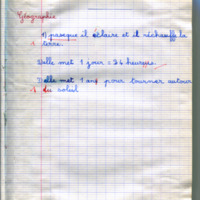 Géographie
1) pasque il éclaire et il réchauffe la
terre.
2) elle met 1 jour = 24 heures.
3) elle met 1 ans pour tourner autour
du soleil